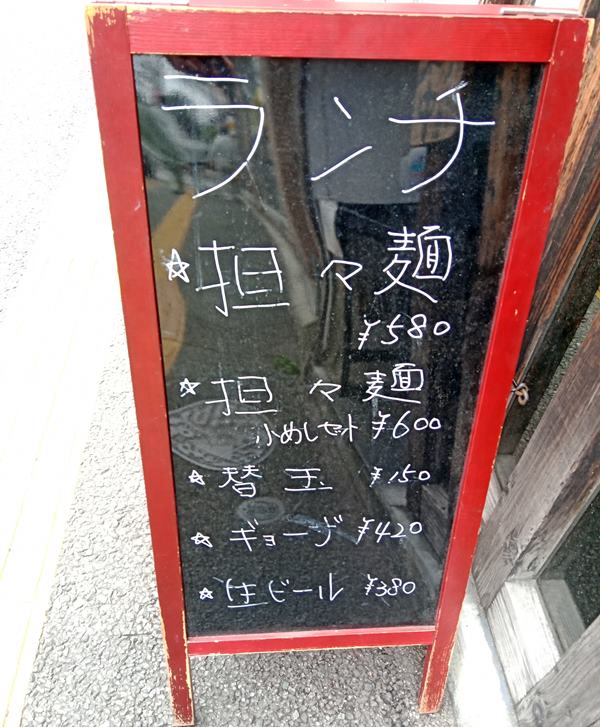 ランチ
☆担々麺
¥580
☆担々麺
小めしセット ¥600
☆替玉 ¥150
☆ギョーザ ¥420
☆生ビール ¥380